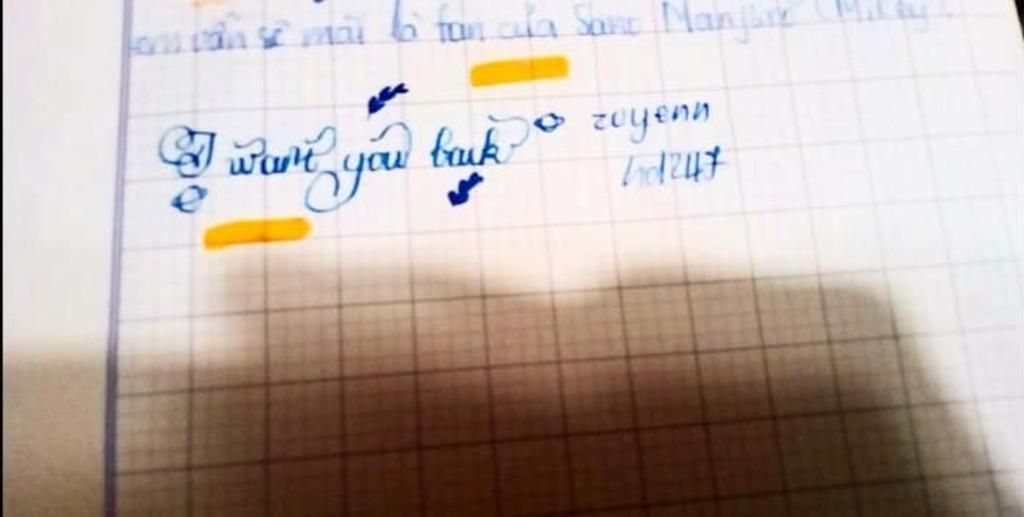 em vẫn sẽ mãi là fan của Sano Manjuro (Mikey)
I want you back zuyenn
hd247